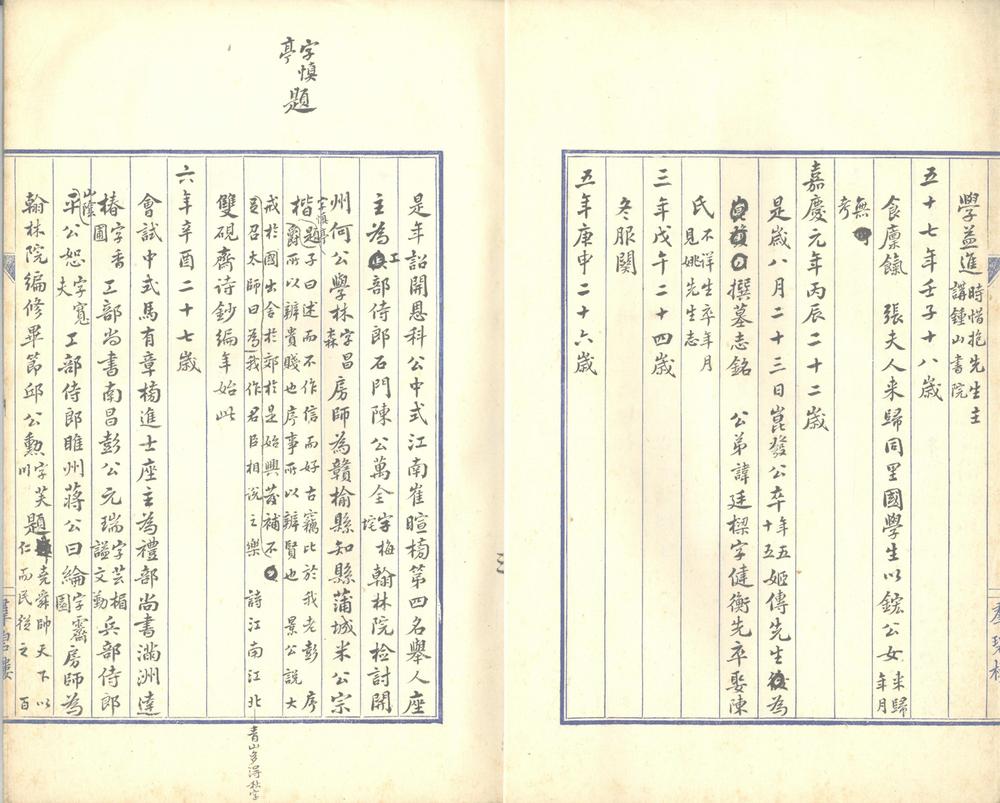 學益進時惜抱先生主講鍾山書院
五十七年壬子十八歲
食廩餼 張夫人來歸同里國學生以鋐公女來歸年月
無考
嘉慶元年丙辰二十二歲
是歲八月二十三日崑發公卒年五十五姬傳先生為
撰墓志銘 公弟諱廷樑字健衡先卒娶陳
氏不詳生卒年月見姚先生志
三年戊午二十四歲
冬服闋
五年庚申二十六歲
是年詔開恩科公中式江南崔暄榜第四名舉人座
主為工部侍郎石門陳公萬全字梅垞翰林院檢討開
州何公學林字昌森房師為贛榆縣知縣蒲城米公宗
字慎亭題
楷字慎亭題子曰述而不作信而好古竊比於我老彭 序爵所以辨貴賤也序事所以辨賢也 景公說大
戒於國出舍於郊於是始興發補不召太師曰為我作君臣相說之樂 詩江南江北
青山多得秋字
雙硯齋詩鈔編年始此
六年辛酉二十七歲
會試中式馬有章榜進士座主為禮部尚書滿洲達
椿字香圃工部尚書南昌彭公元瑞字芸楣諡文勤兵部侍郎
山陰平公恕字寬夫工部侍郎睢州蔣公曰綸字霽園房師為
翰林院編修畢節邱公勲字芙川題堯舜帥天下以仁而民從之 百
羣碧樓